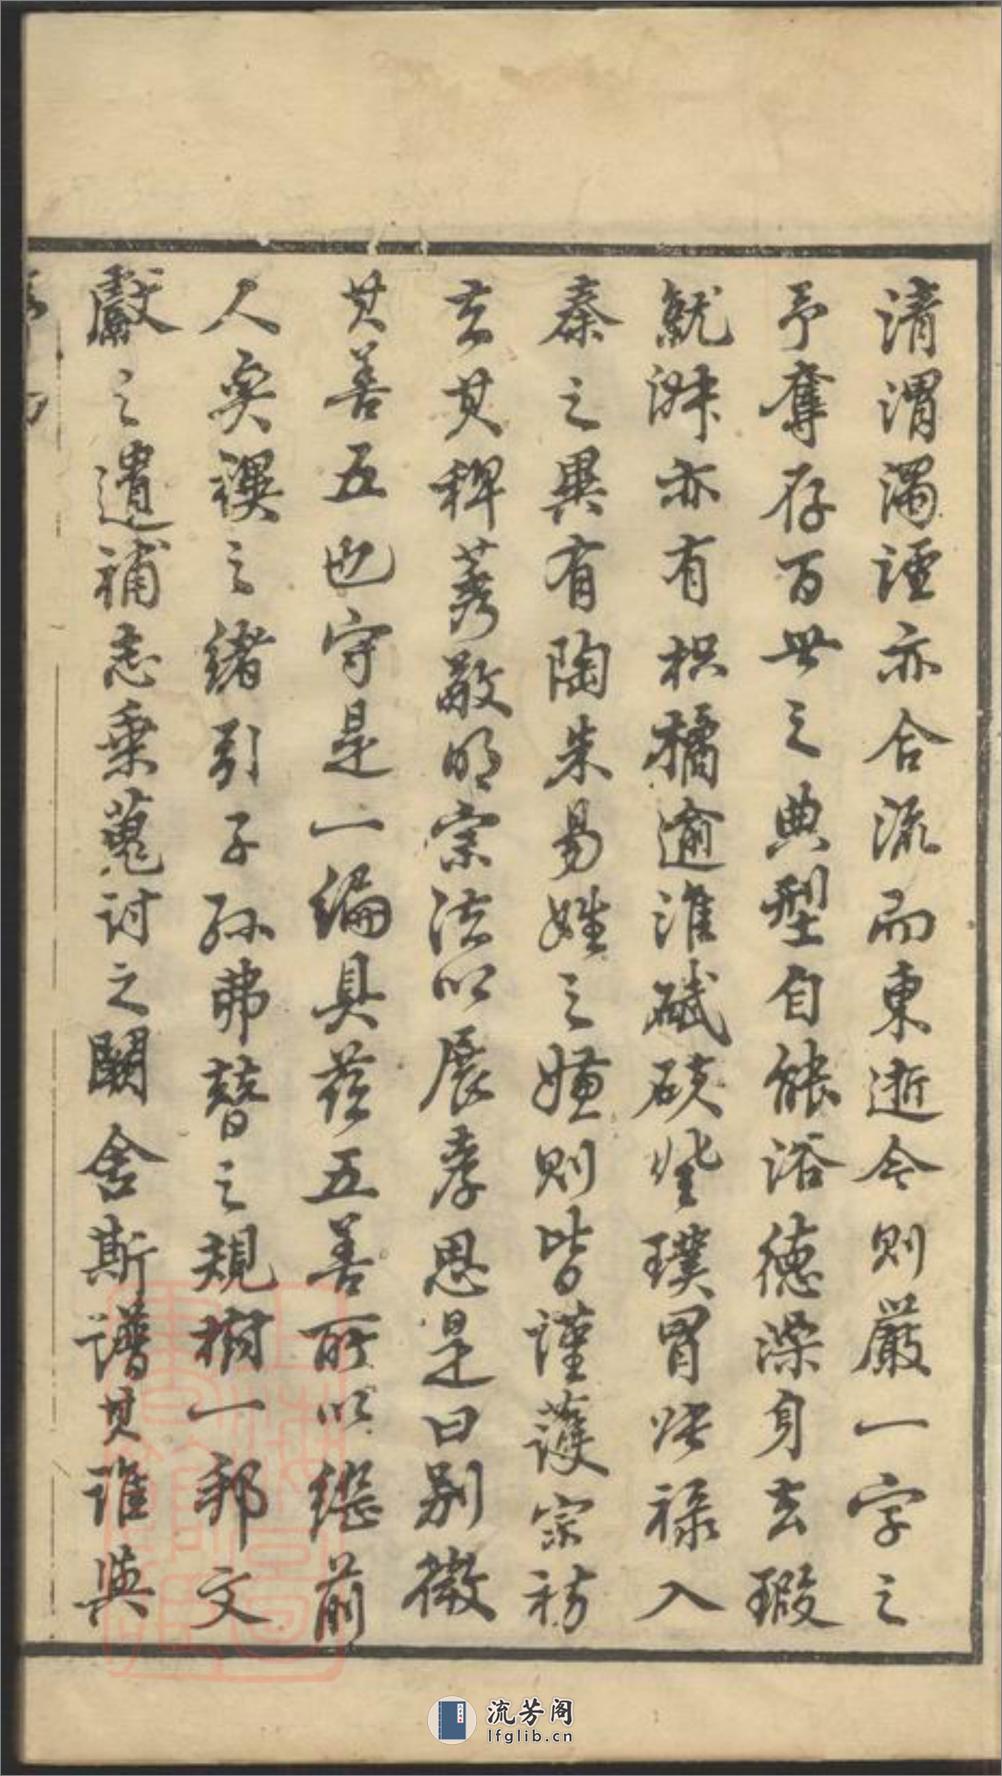 清渭濁涇亦合流而東逝今則嚴一字之
予奪存百世之典型自能浴德澡身去瑕
就淑亦有枳橘逾淮碔砆登璞冒張祿入
秦之異有陶朱易姓之嫌則皆謹護宗祊
去其稗莠敬明宗法以展孝思是曰別徵
其善五也守是一編具茲五善所以繼前
人奕禩之緒引子孫弗替之規樹一邦文
獻之遺補志乘蒐討之闕舍斯譜其誰與
流芳阁
lfglib.cn